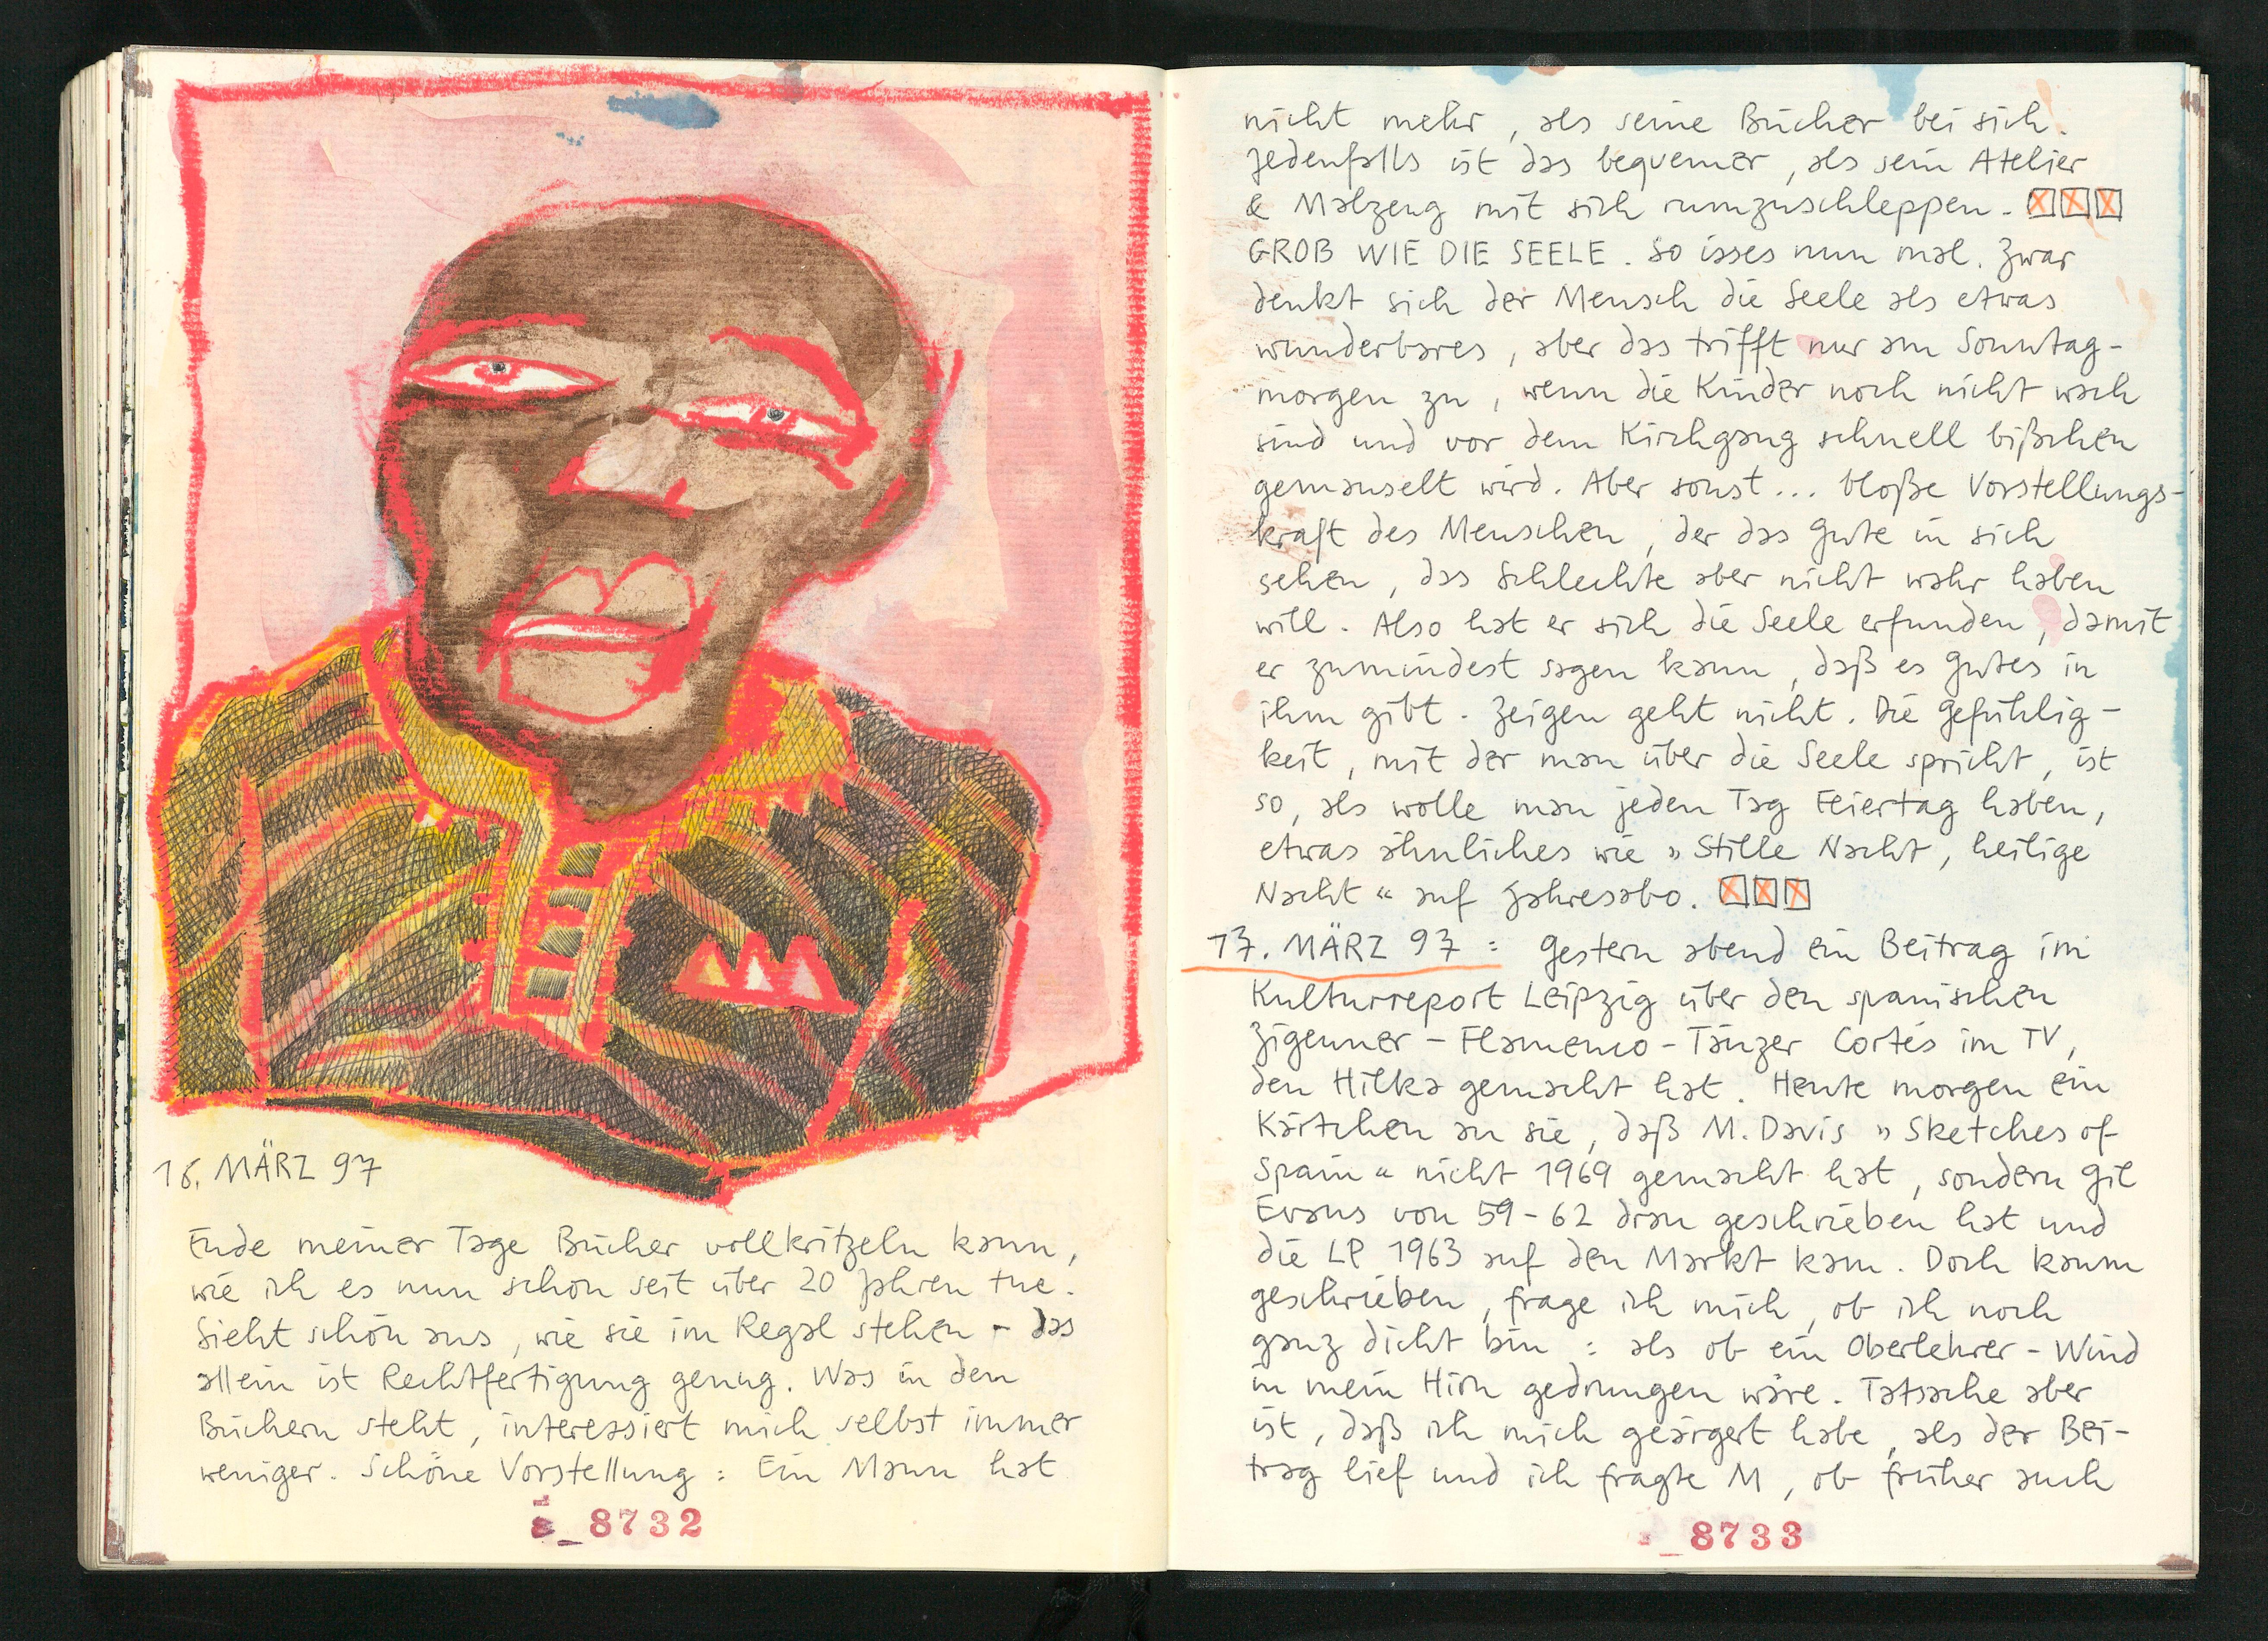 16. MÄRZ 97
Ende meiner Tage Bücher vollkritzeln kann,
wie ich es nun schon seit über 20 Jahren tue.
Sieht schön aus, wie sie im Regal stehen - das
allein ist Rechtfertigung genug. Was in den
Büchern steht, interessiert mich selbst immer
weniger. Schöne Vorstellung: Ein Mann hat
8732
nicht mehr, als seine Bücher bei sich.
Jedenfalls ist das bequemer, als sein Atelier
& Malzeug mit sich rumzuschleppen.
GROB WIE DIE SEELE. So isses nun mal. Zwar
denkt sich der Mensch die Seele als etwas
wunderbares, aber das trifft nur am Sonntag-
morgen zu, wenn die Kinder noch nicht wach
sind und vor dem Kirchgang schnell bißchen
gemauselt wird. Aber sonst... bloße Vorstellungs-
kraft des Menschen, der das Gute in sich
sehen, das Schlechte aber nicht wahr haben
will. Also hat er sich die Seele erfunden, damit
er zumindest sagen kann, daß es Gutes in
ihm gibt. Zeigen geht nicht. Die Gefühlig-
keit, mit der man über die Seele spricht, ist
so, als wolle man jeden Tag Feiertag haben,
etwas ähnliches wie »Stille Nacht, heilige
Nacht« auf Jahresabo.
17. MÄRZ 97: Gestern abend ein Beitrag im
Kulturreport Leipzig über den spanischen
Zigeuner-Flamenco-Tänzer Cortés im TV,
den Hilka gemacht hat. Heute morgen ein
Kärtchen an sie, daß M. Davis »Sketches of
Spain« nicht 1969 gemacht hat, sondern Gil
Evans von 59-62 dran geschrieben hat und
die LP 1963 auf den Markt kam. Doch kaum
geschrieben, frage ich mich, ob ich noch
ganz dicht bin: als ob ein Oberlehrer-Wind
in mein Hirn gedrungen wäre. Tatsache aber
ist, daß ich mich geärgert habe, als der Bei-
trag lief und ich fragte M, ob früher auch
8733